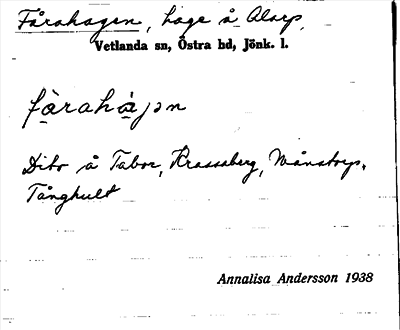 Fårahagen, hage å Alarp,
Vetlanda sn, Östra hd, Jönk. l.
fårahàjən
Dito å Tabor, Krassaberg, Månstorp,
Tånghult
Annalisa Andersson 1938